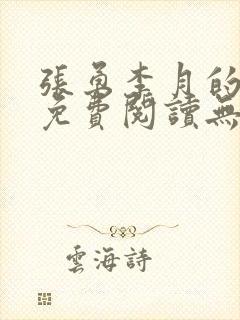 張勇李月的
免費閱讀無
雲海詩